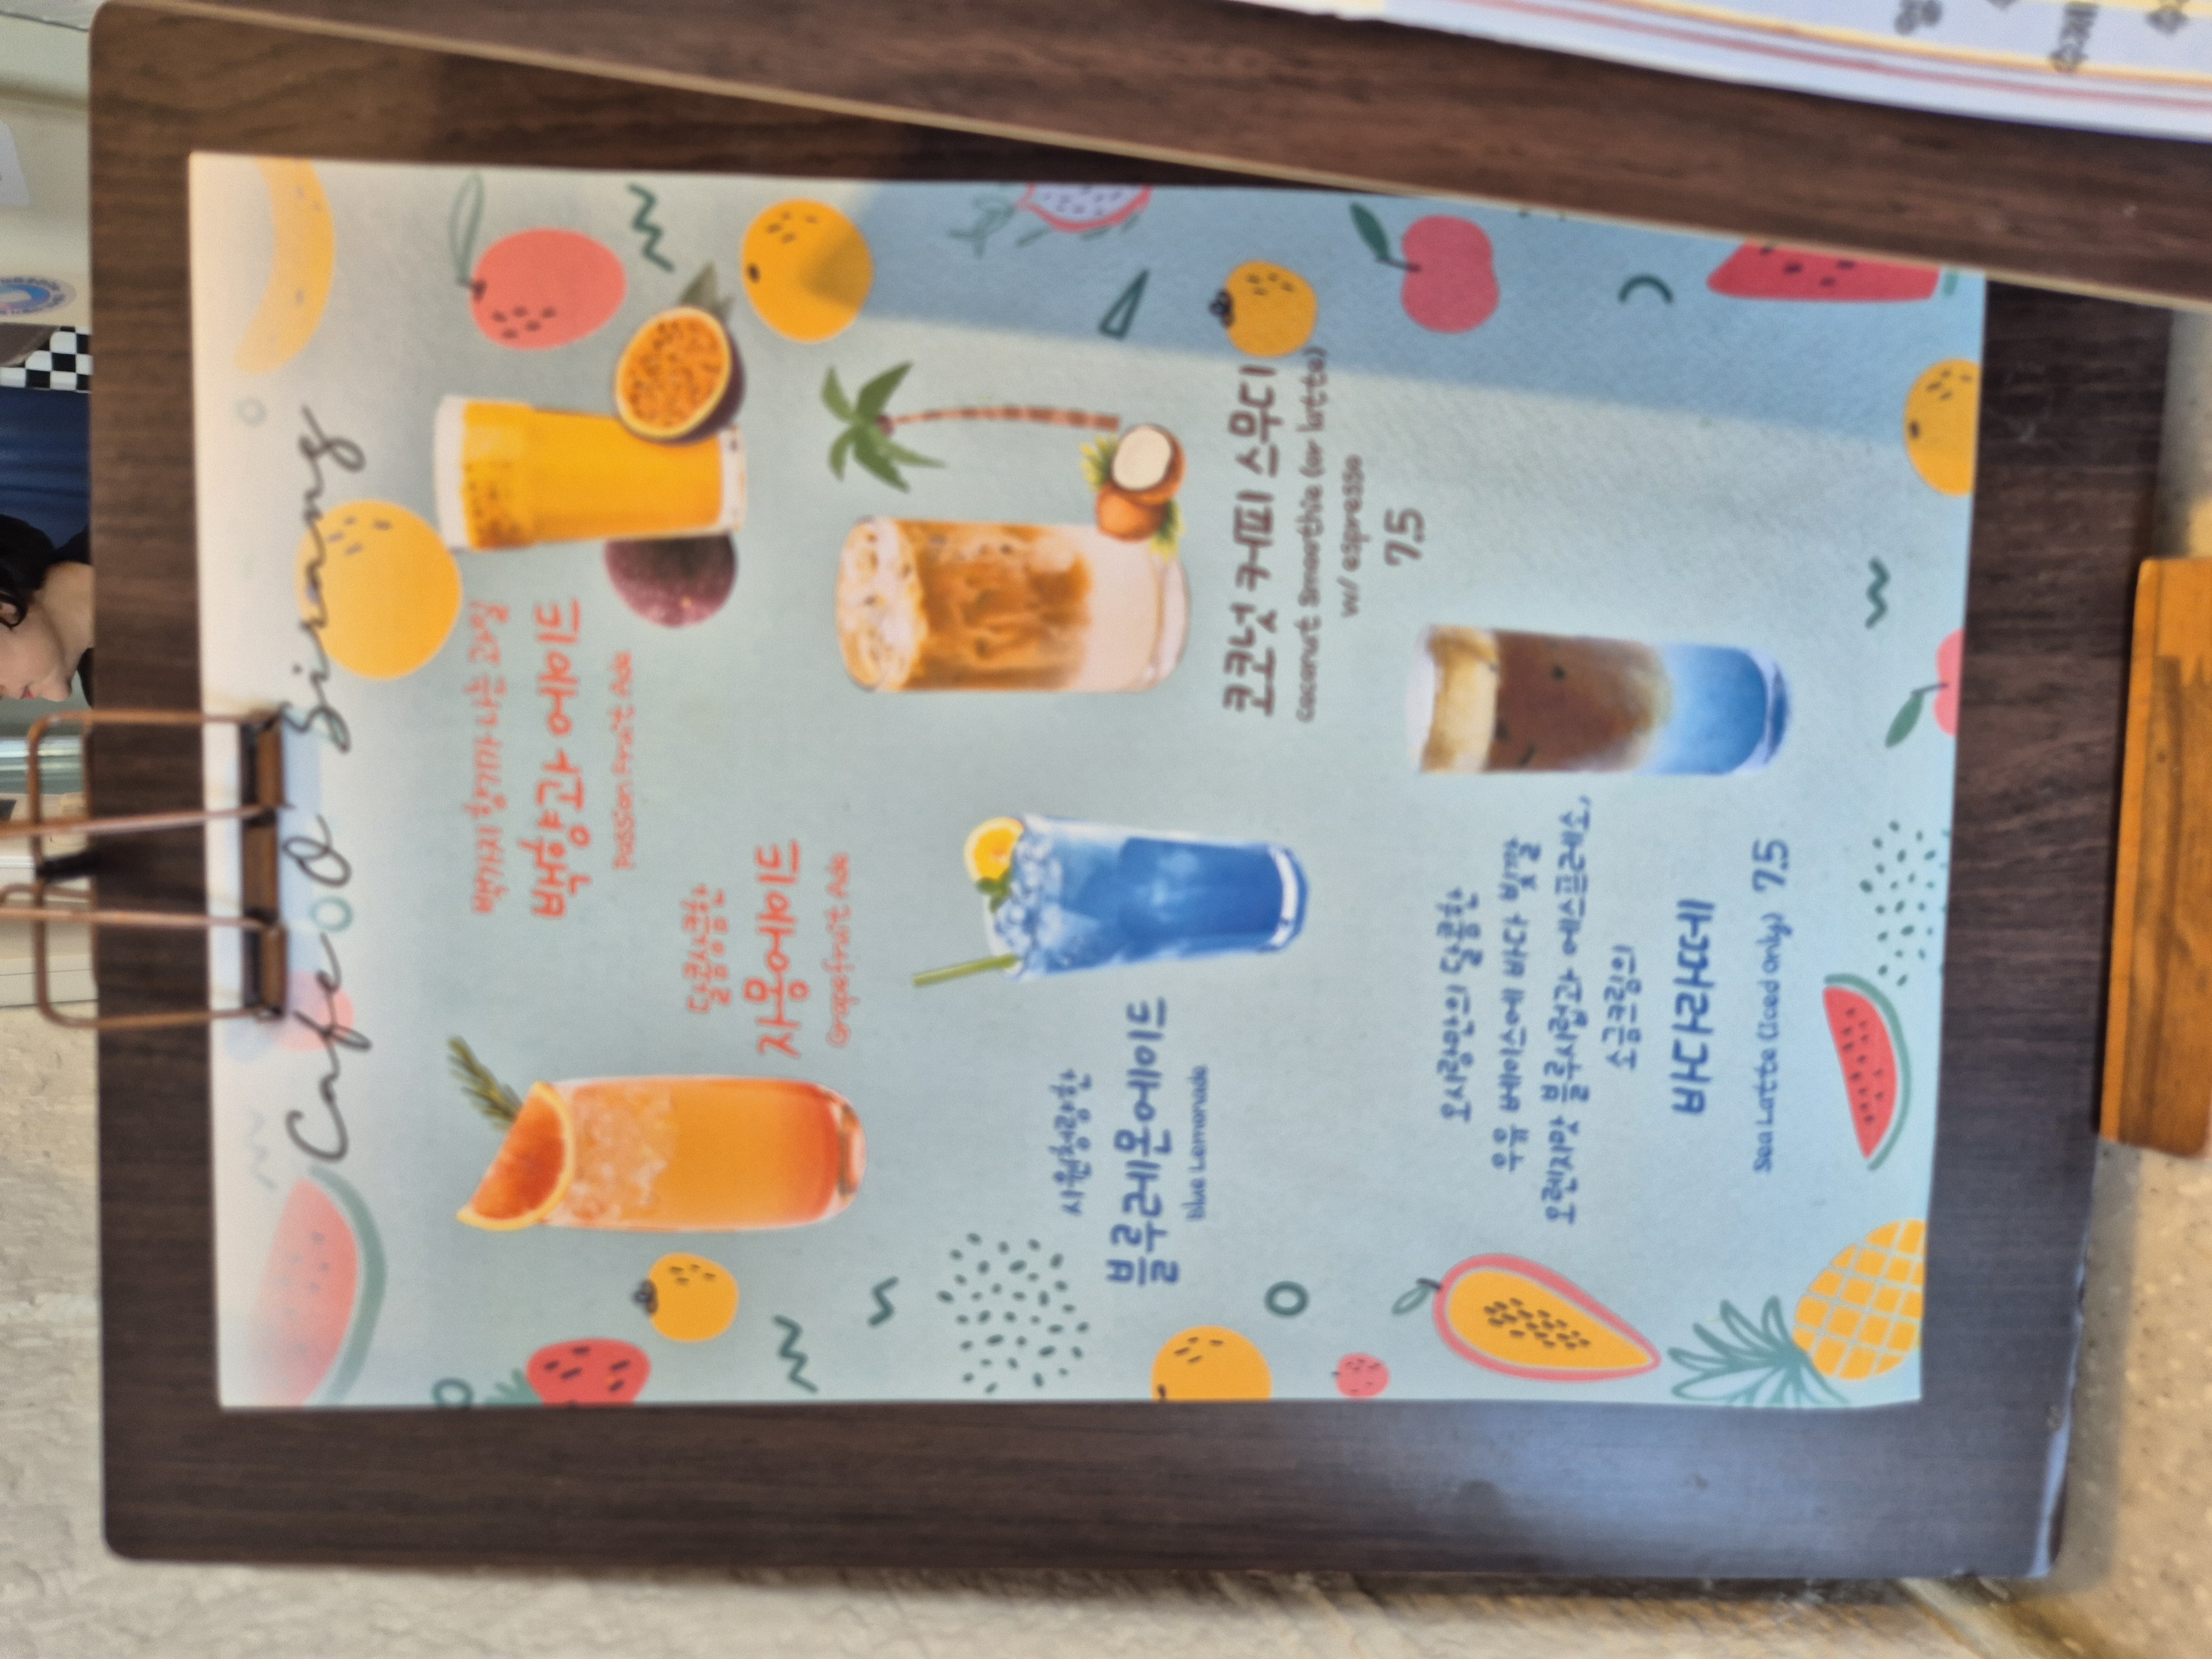 Cafe O Sirang
톡톡 터지니까 살구 맛있는
백향과 에이드
Passion Fruit Ade
달콤씁쓸한
자몽에이드
Grapefruit Ade
코코넛 커피 스무디
Coconut Smoothie (or latte)
w/ espresso
7.5
시원청량한
블루레몬에이드
Blue Lemonade
오시랑만의 달콤한
우유 베이스에 바다 빛깔
오렌지맛 블루시럽과 에스프레소,
소금크림의
바다라떼
Sea Latte (Iced only) 7.5